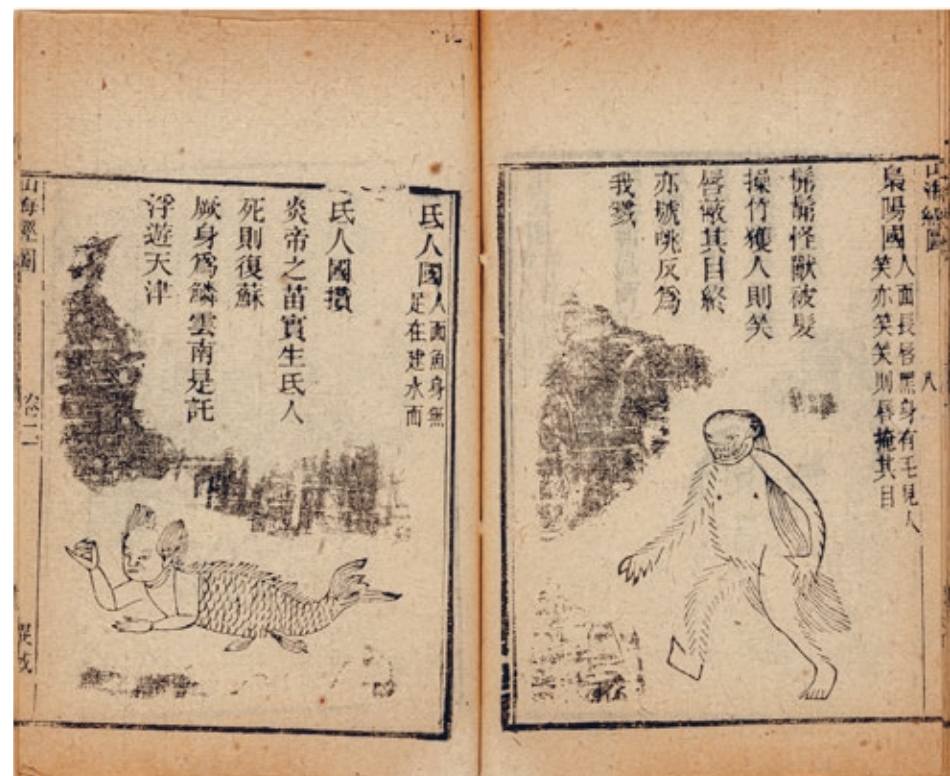 山海經圖
八
梟陽國
人面長唇黑身有毛見人
笑亦笑笑則唇掩其目
怪獸被髮
操竹獲人則笑
唇蔽其目終
亦號咷反爲
我戮
氏人國
人面魚身無
足在建水而
氏人國攢
炎帝之苗實生氏人
死則復蘇
厥身爲鱗雲南是託
浮遊天津
山海經圖
卷二
異域